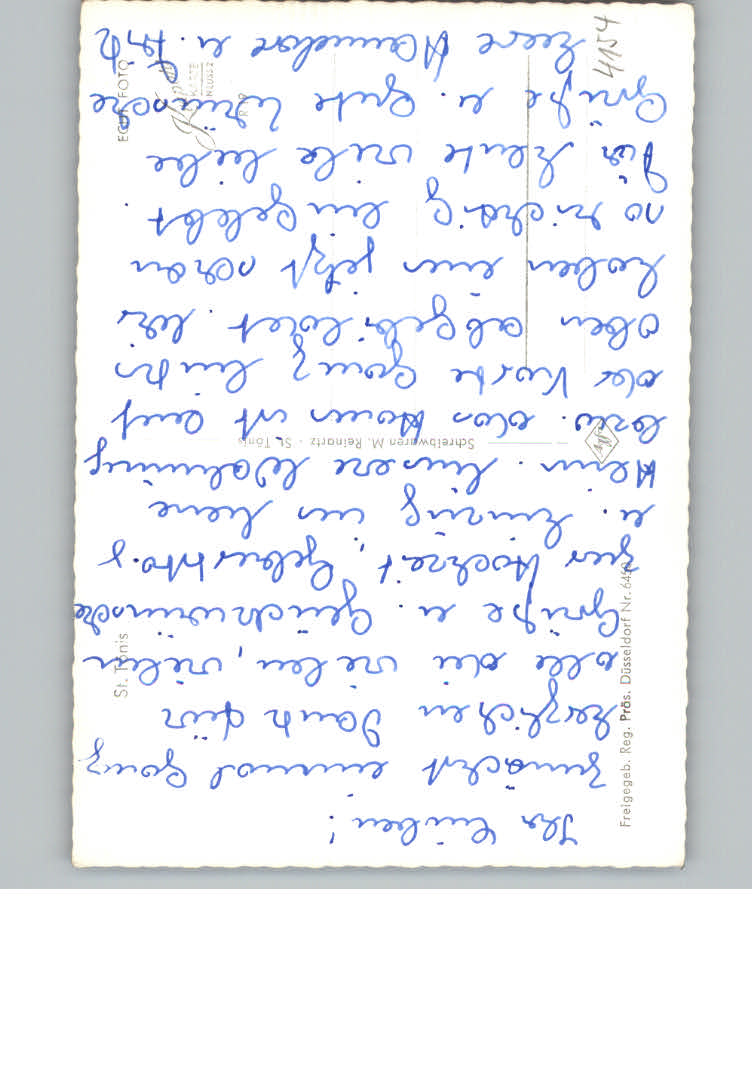 Ihr Lieben!
zunächst einmal ganz
herzlichen Dank für
alle die vielen, vielen
Grüße u. Glückwünsche
zur Hochzeit, Geburtstag
u. Einzug ins neue
Heim. Unsere Wohnung
bzw. das Haus ist auf
der Karte ganz links
oben abgebildet. Wir
haben uns jetzt schon
so richtig eingelebt.
Für heute viele liebe
Grüße u. gute Wünsche
Eure Hannelore u.
St. Tönis
Freigegeb. Reg. Präs. Düsseldorf Nr.
Schreibwaren M. Reinartz - St. Tönis
Agfa
ECHT FOTO
4154